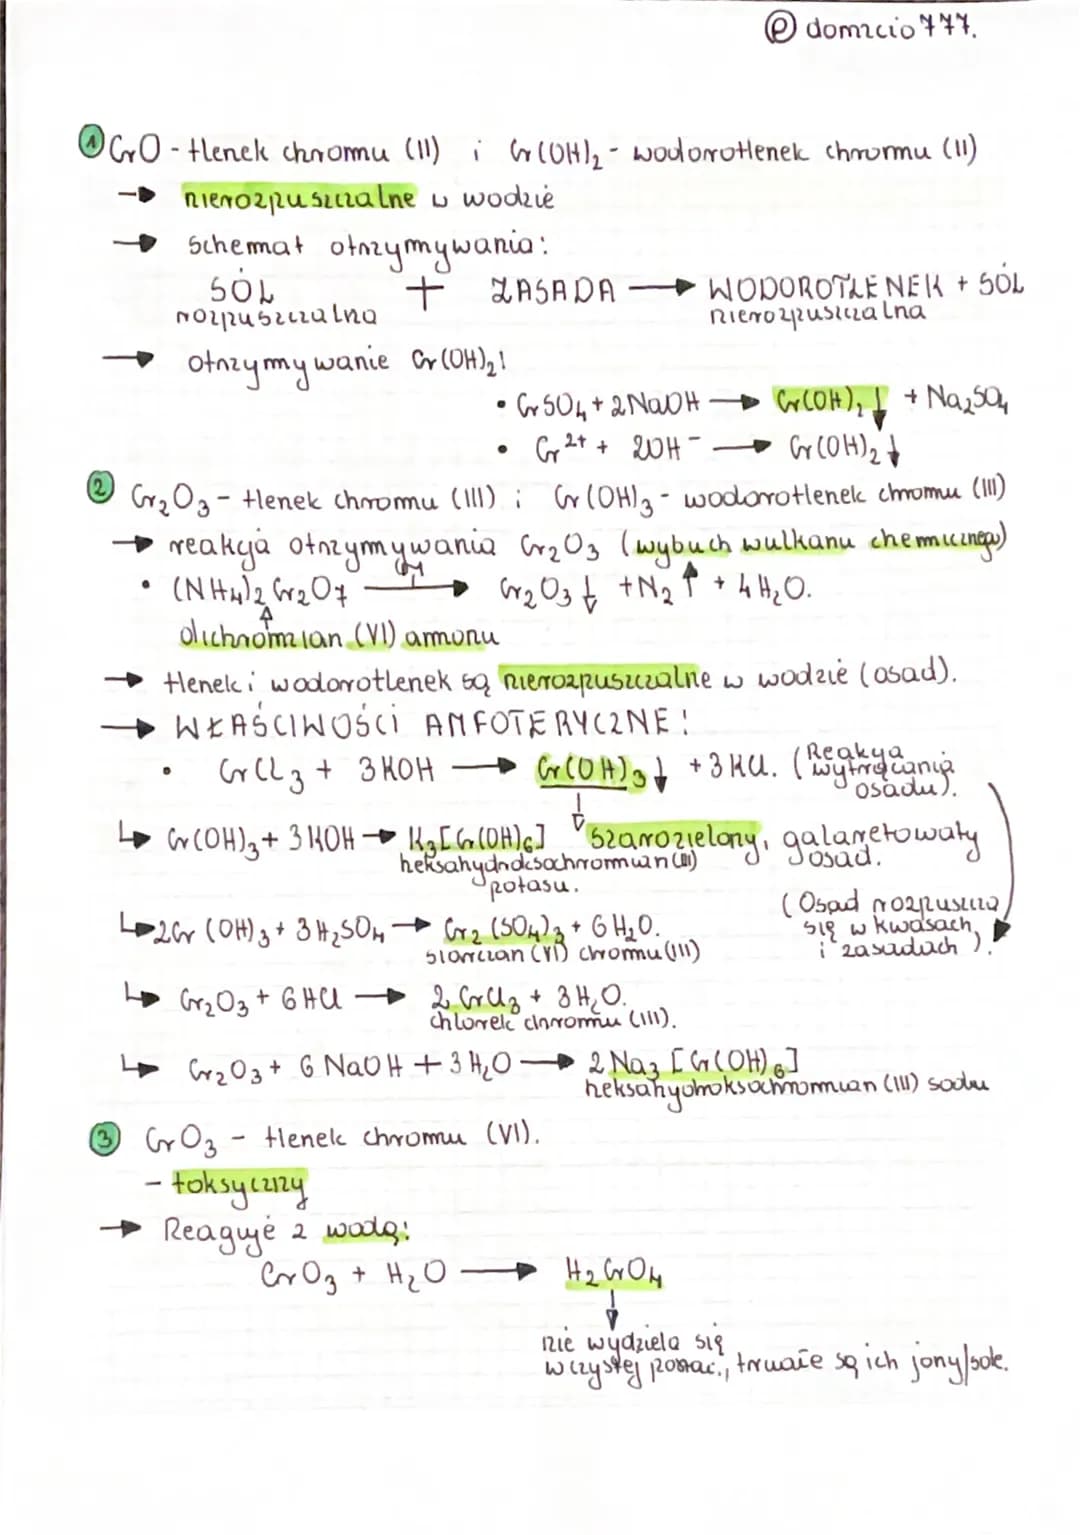 @domzcio777.
① CrO - tlenek chromu (II) i Cr(OH)₂ - wodorotlenek chromu (II)
→ nierozpuszczalne w wodzie
→ Schemat otrzymywania:
SÓL + ZASADA → WODOROTLENEK + SÓL
rozpuszczalna nierozpuszczalna
→ otrzymywanie Cr(OH)₂!
• CrSO₄ + 2NaOH → Cr(OH)₂↓ + Na₂SO₄
• Cr²⁺ + 2OH⁻ → Cr(OH)₂↓
② Cr₂O₃ - tlenek chromu (III) i Cr(OH)₃ - wodorotlenek chromu (III)
→ reakcja otrzymywania Cr₂O₃ (wybuch wulkanu chemicznego)
• (NH₄)₂Cr₂O₇ → Cr₂O₃↓ + N₂↑ + 4H₂O.
dichromian (VI) amonu
→ tlenek i wodorotlenek są nierozpuszczalne w wodzie (osad).
→ WŁAŚCIWOŚCI AMFOTERYCZNE!
• CrCl₃ + 3KOH → Cr(OH)₃↓ + 3KCl. (Reakcja wytrącania osadu).
↳ Cr(OH)₃ + 3KOH → K₃[Cr(OH)₆] szarozielony, galaretowaty osad.
heksahydroksochromian (III) potasu.
(Osad rozpuszcza się w kwasach i zasadach).
↳ 2Cr(OH)₃ + 3H₂SO₄ → Cr₂(SO₄)₃ + 6H₂O.
siarczan (VI) chromu (III)
↳ Cr₂O₃ + 6HCl → 2CrCl₃ + 3H₂O.
chlorek chromu (III).
↳ Cr₂O₃ + 6NaOH + 3H₂O → 2Na₃[Cr(OH)₆]
heksahydroksochromian (III) sodu
③ CrO₃ - tlenek chromu (VI).
- toksyczny
→ Reaguje z wodą:
CrO₃ + H₂O → H₂CrO₄
nie wydziela się
w czystej postaci, trwałe są ich jony/sole.